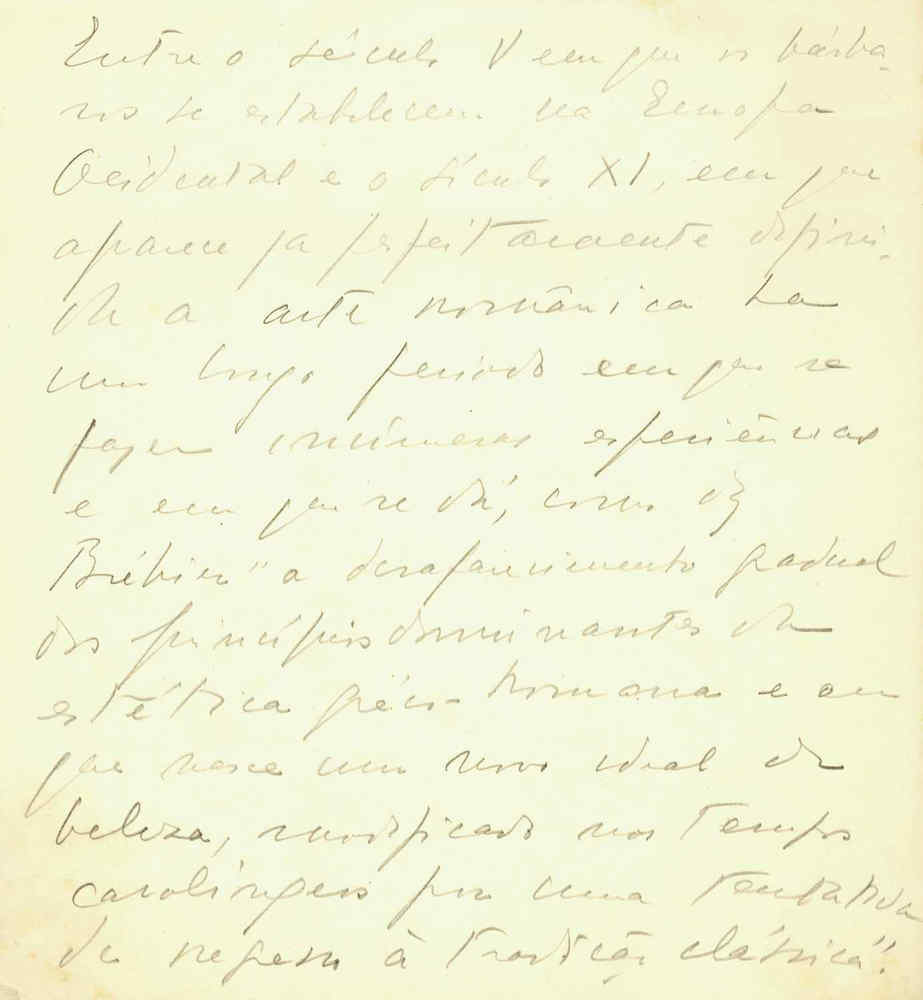 Entre o século V em que os bárba-
ros se establecem na Europa
Ocidental e o século XI, em que
aparece ja perfeitamente defini-
da a arte românica ha
um longo periodo em que se
fazem inúmeras esperiências
e em que se dá, como diz
Bréhier "o desaparecimento gradual
dos princípios dominantes da
estética gréco-romana e em
que nasce um novo ideal de
beleza, modificado nos tempos
carolíngeos por uma tentativa
de regresso à tradição clássica".